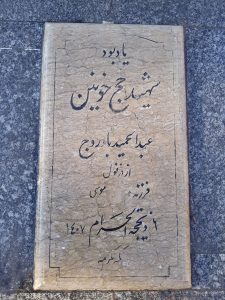 یادبود
شهید حج خونین
عبدالحمید بادروج
از دزفول
فرزند موسی
۶ ذیحجة الحرام ۱۴۰۷
مکه مکرمه